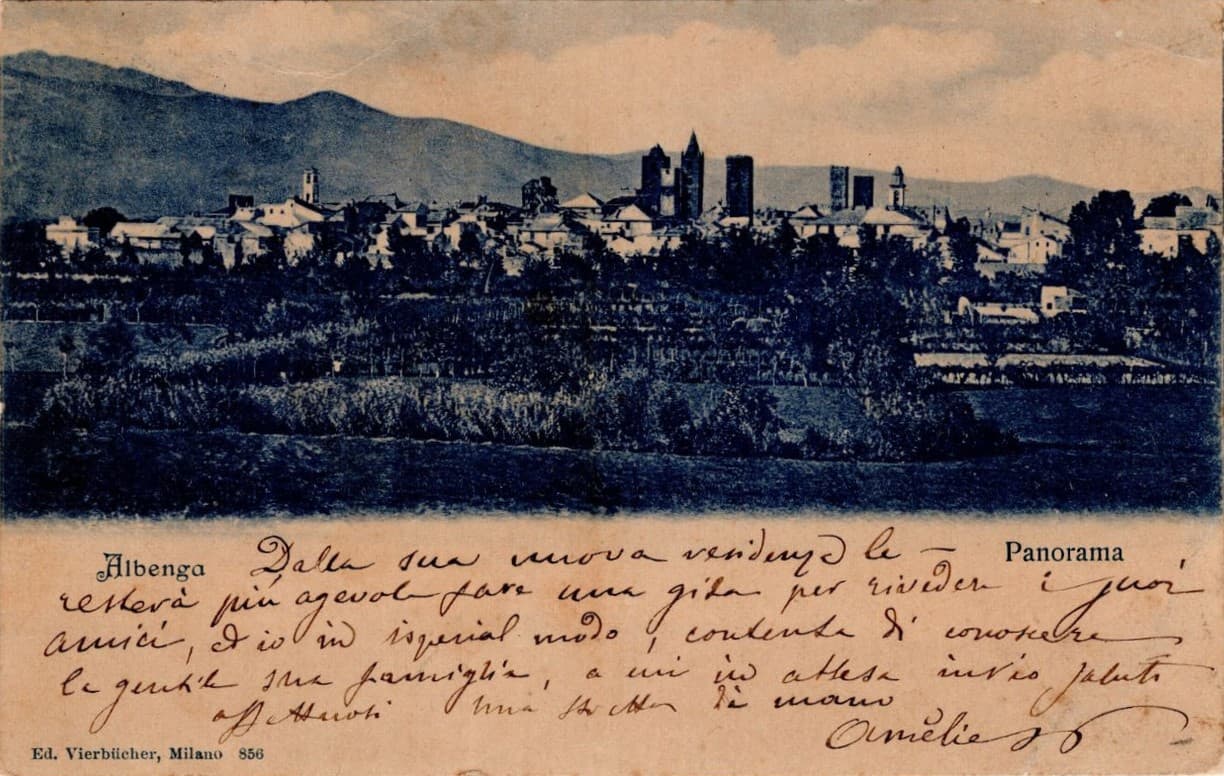 Albenga
Panorama
Dalla sua nuova residenza le —
resterà più agevole fare una gida per rivedere i suoi
amici, ed io in ispecial modo, contenta di conoscere
la gentile sua famiglia, a mi in attesa invio saluti
affettuosi una stretta di mano
Amélie
Ed. Vierbücher, Milano 856